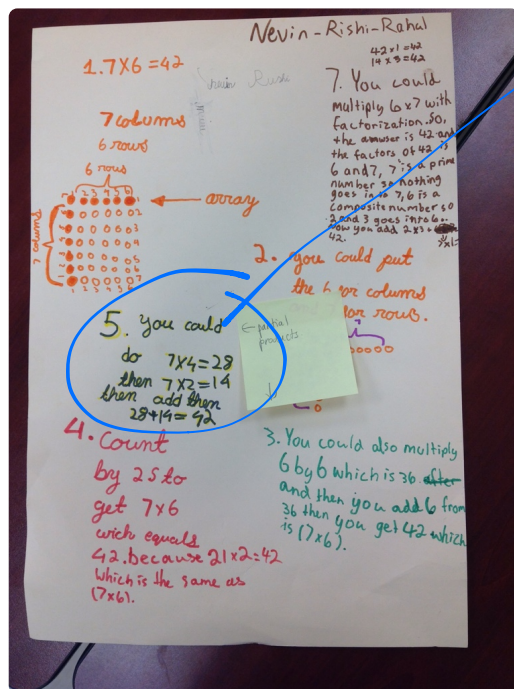 Nevin-Rishi-Rahul
42x1=42
14x3=42
1.7x6=42
7 columns
6 rows
6 rows
1 2 3 4 5 6
array
7 columns
7. You could
multiply 6x7 with
factorization. So,
the answer is 42 and
the factors of 42 is
6 and 7, 7 is a prime
number so nothing
goes in to 7, 6 is a
composite number so
2 and 3 goes into 6.
Now you add 2x3
42.
2. you could put
the 6 for columns
for rows.
5. you could
do 7x4=28
then 7x2=14
then add then
28+14=42
← partial
products
4. Count
by 2s to
get 7x6
wich equals
42. because 21x2=42
which is the same as
(7x6).
3. You could also multiply
6 by 6 which is 36 after
and then you add 6 from
36 then you get 42 which
is (7x6).